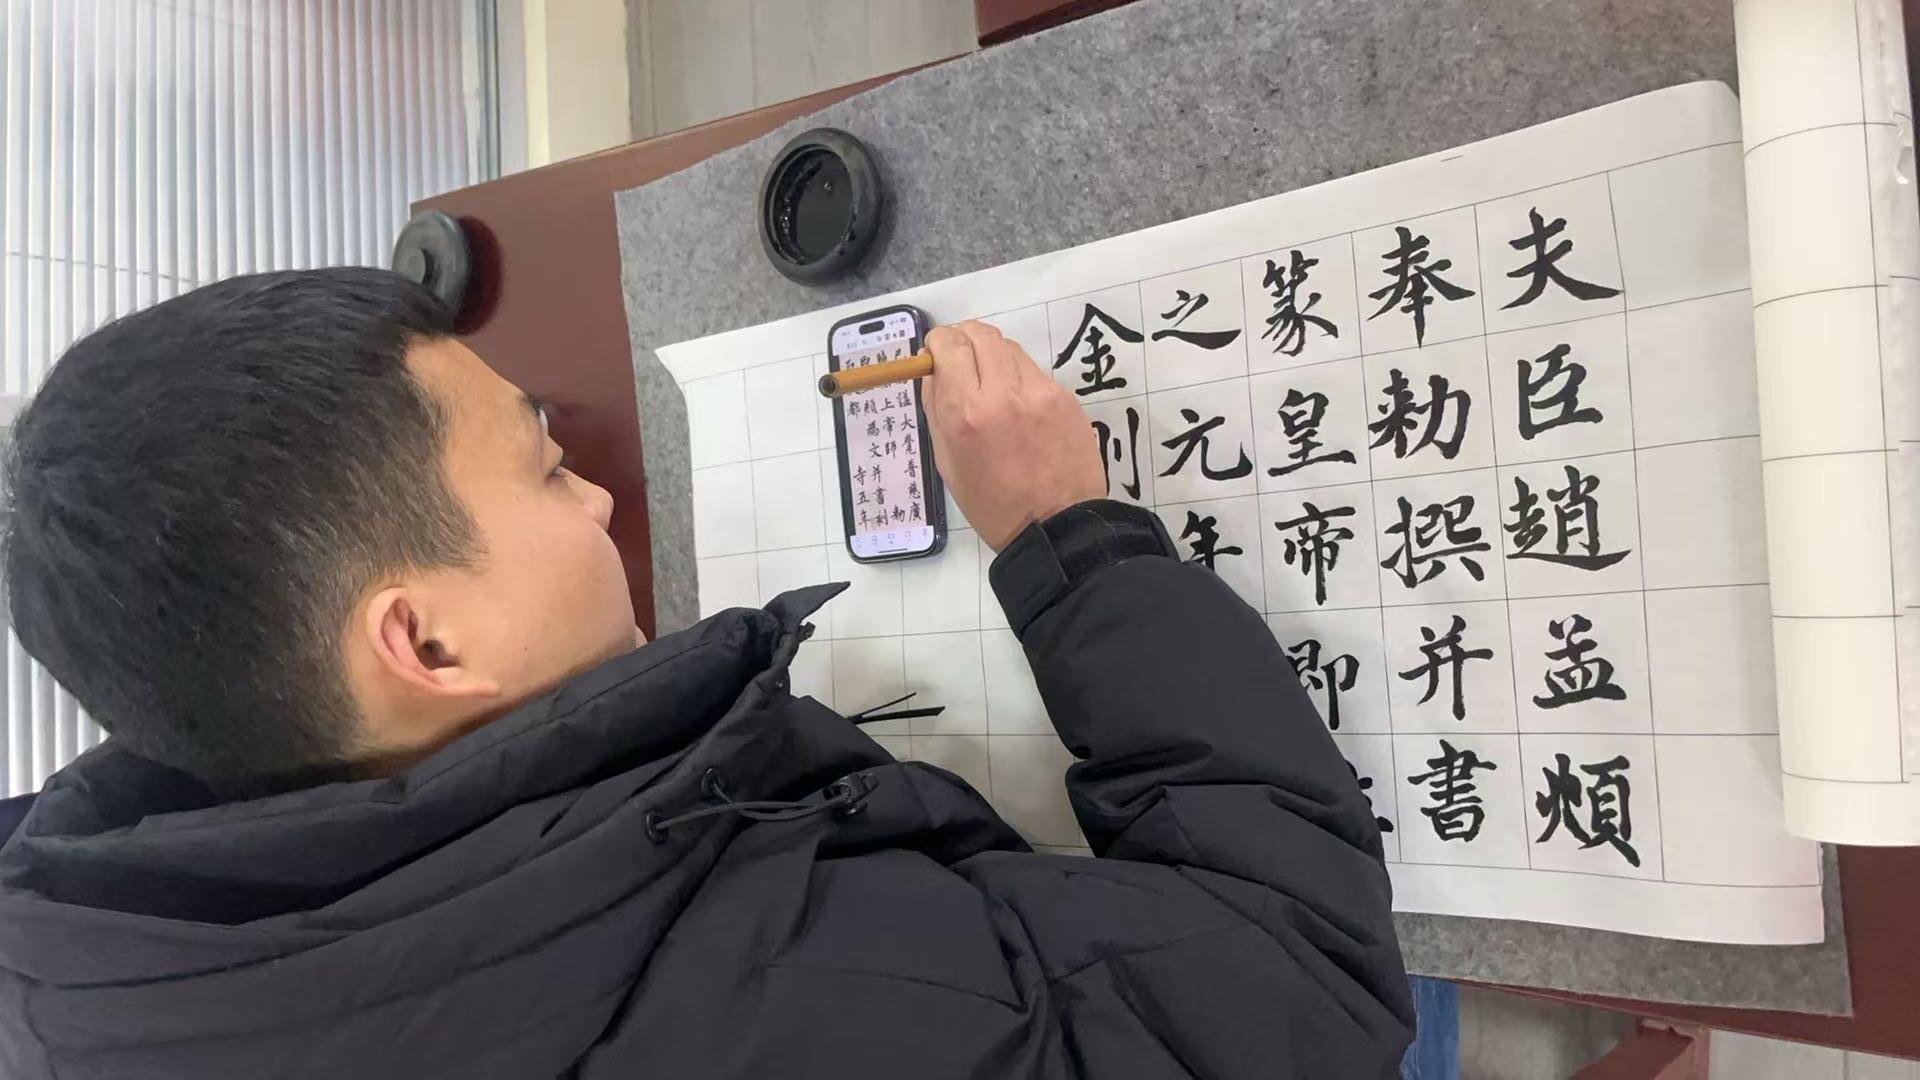 夫臣趙孟頫
奉勑撰并書
篆皇帝即
之元年
金
謚大覺普慈廣
上帝師勑
頫為文并書刻
都寺五年